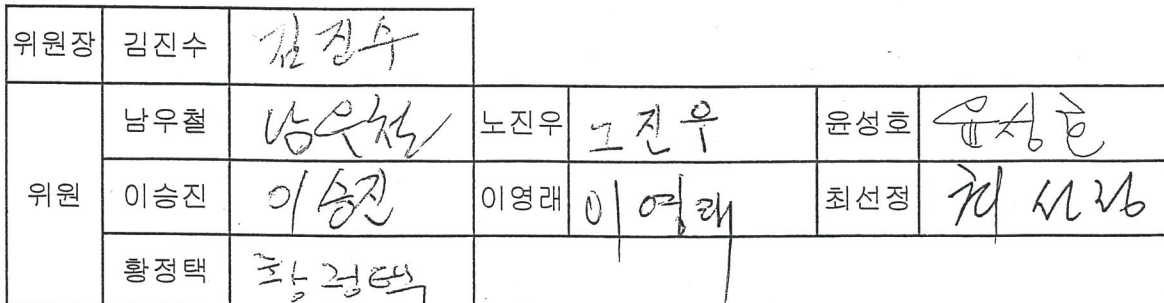 위원장 김진수 김진수
남우철 남우철 노진우 노진우 윤성호 윤성호
위원 이승진 이승진 이영래 이영래 최선정 최선정
황정택 황정택